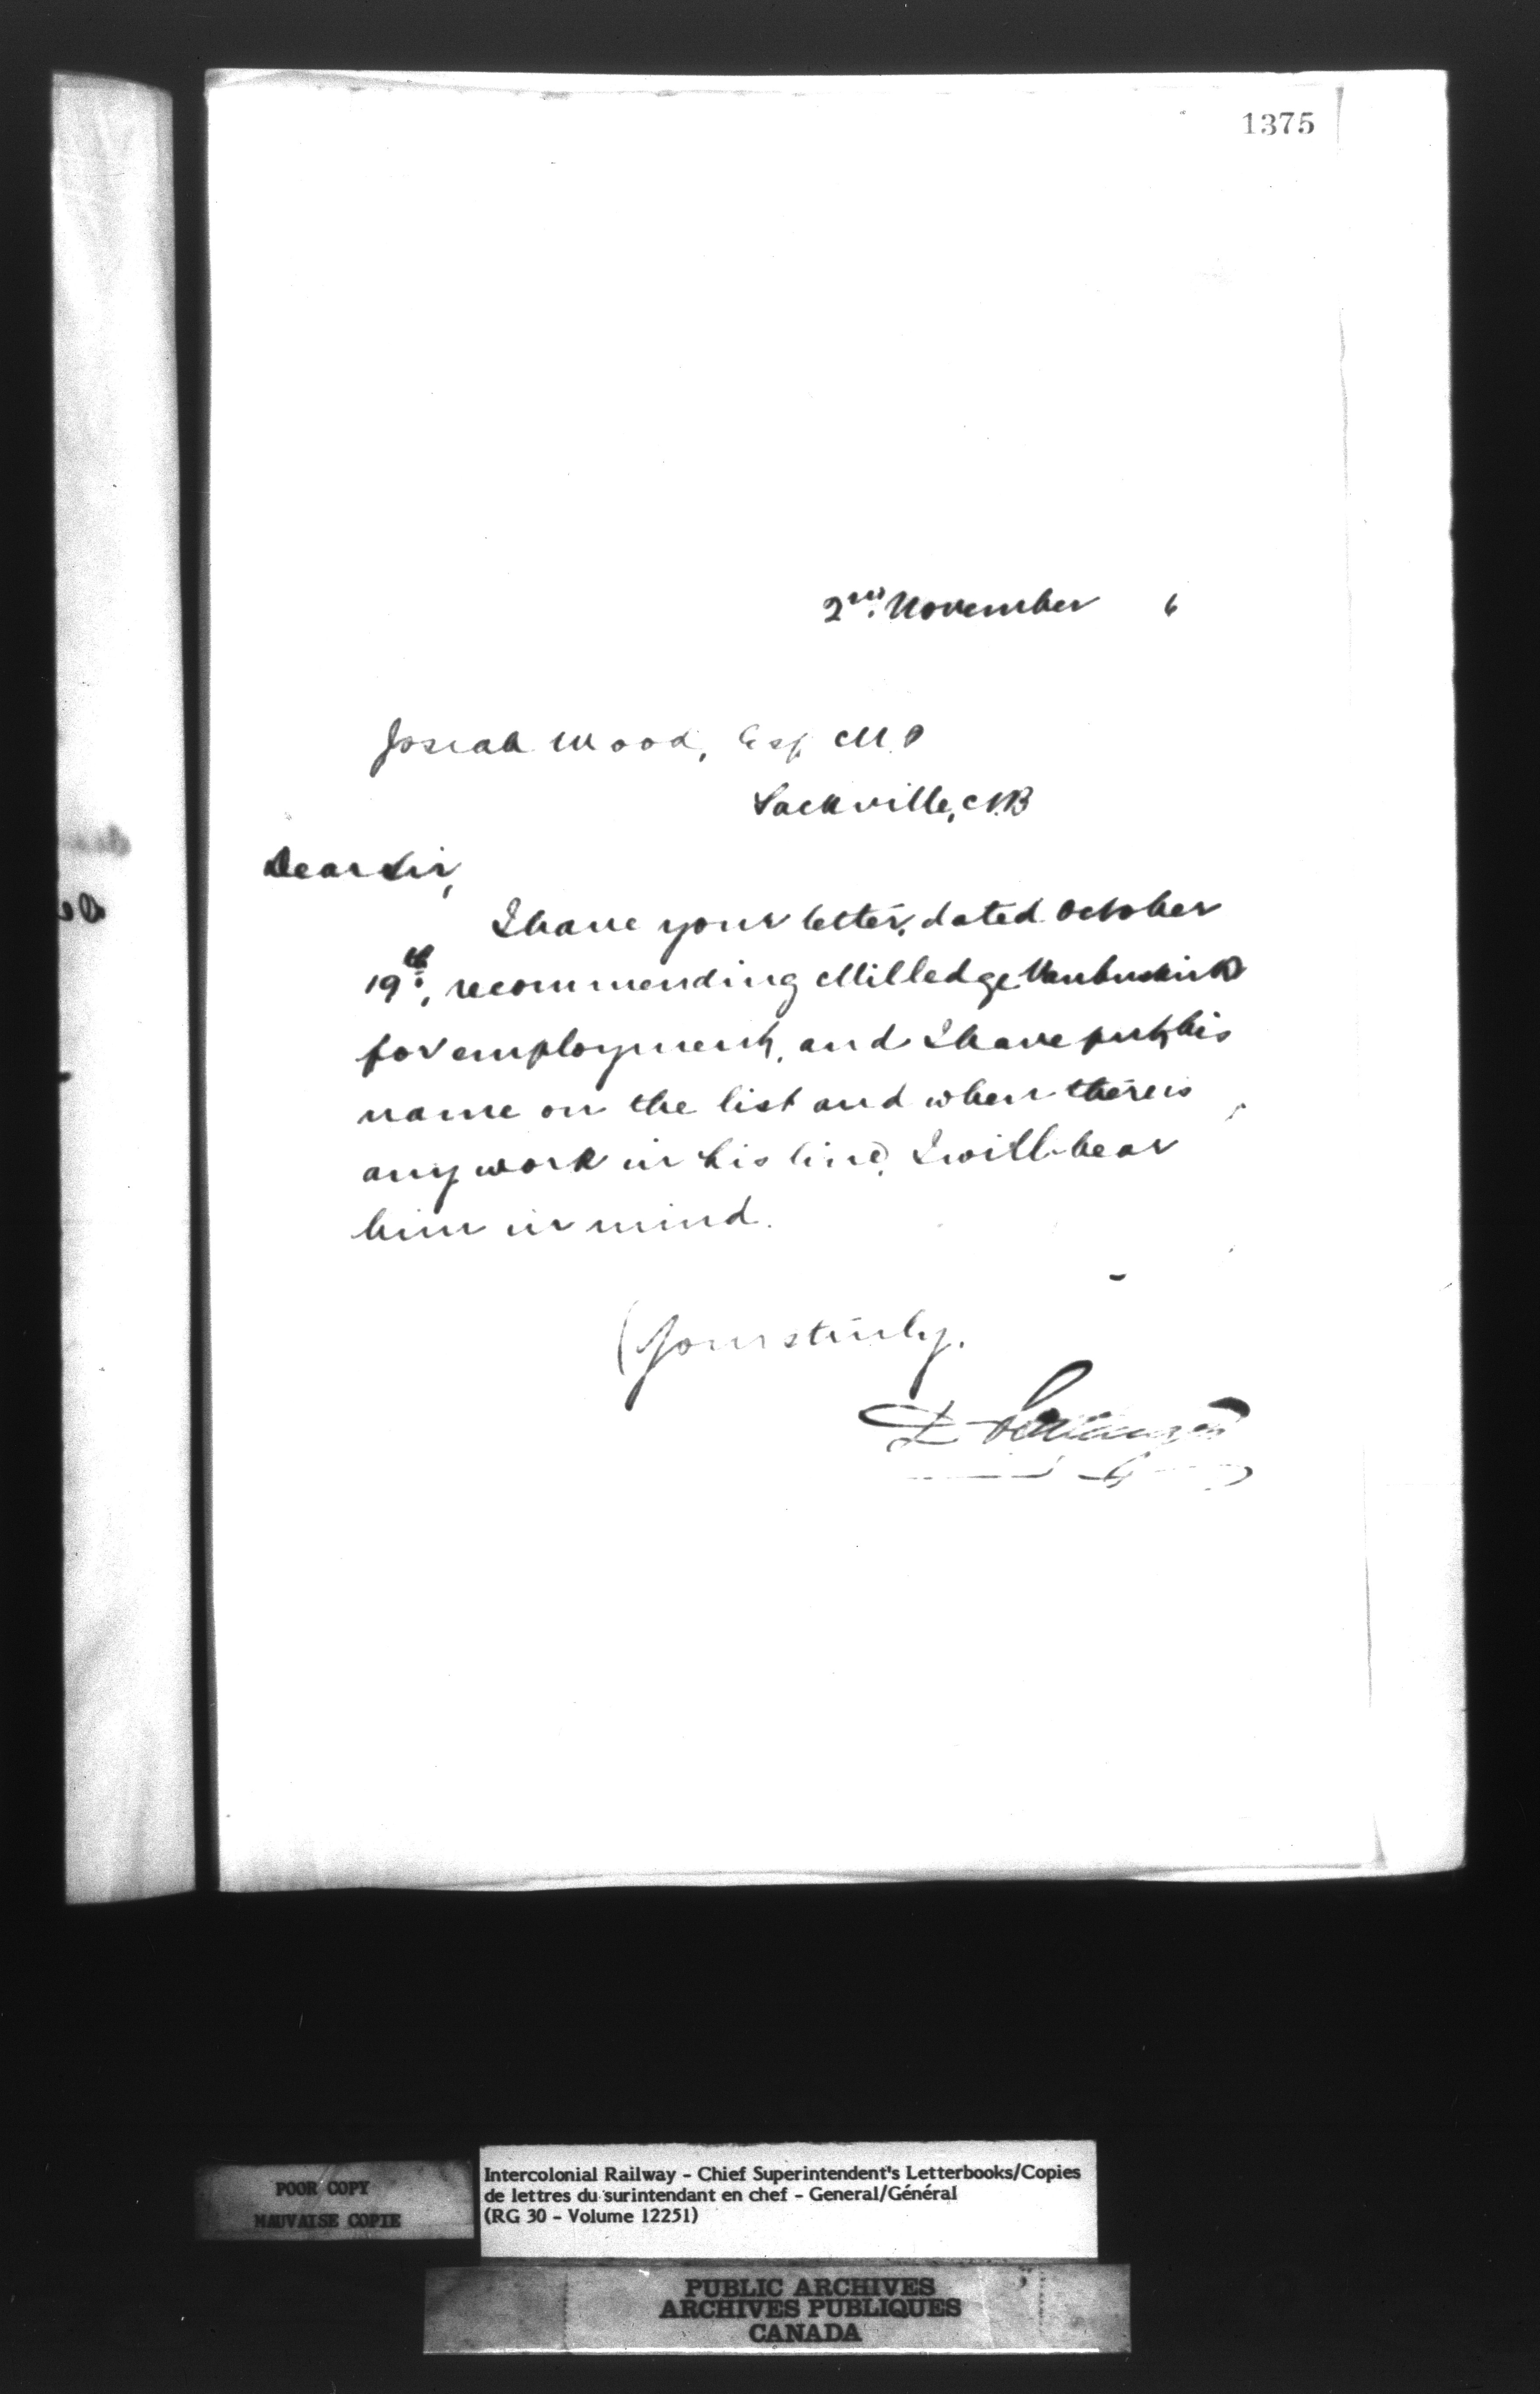 1375
2nd. November 6
Josiah Wood, Esq M.P
Sackville, N.B
Dear Sir,
I have your letter, dated October
19th, recommending Milledge Vanbuskirk
for employment, and I have put his
name on the list and when there is
any work in his line, I will bear
him in mind.
Yours truly.
D Pottinger
POOR COPY
MAUVAISE COPIE
Intercolonial Railway - Chief Superintendent's Letterbooks/Copies
de lettres du surintendant en chef - General/Général
(RG 30 - Volume 12251)
PUBLIC ARCHIVES
ARCHIVES PUBLIQUES
CANADA